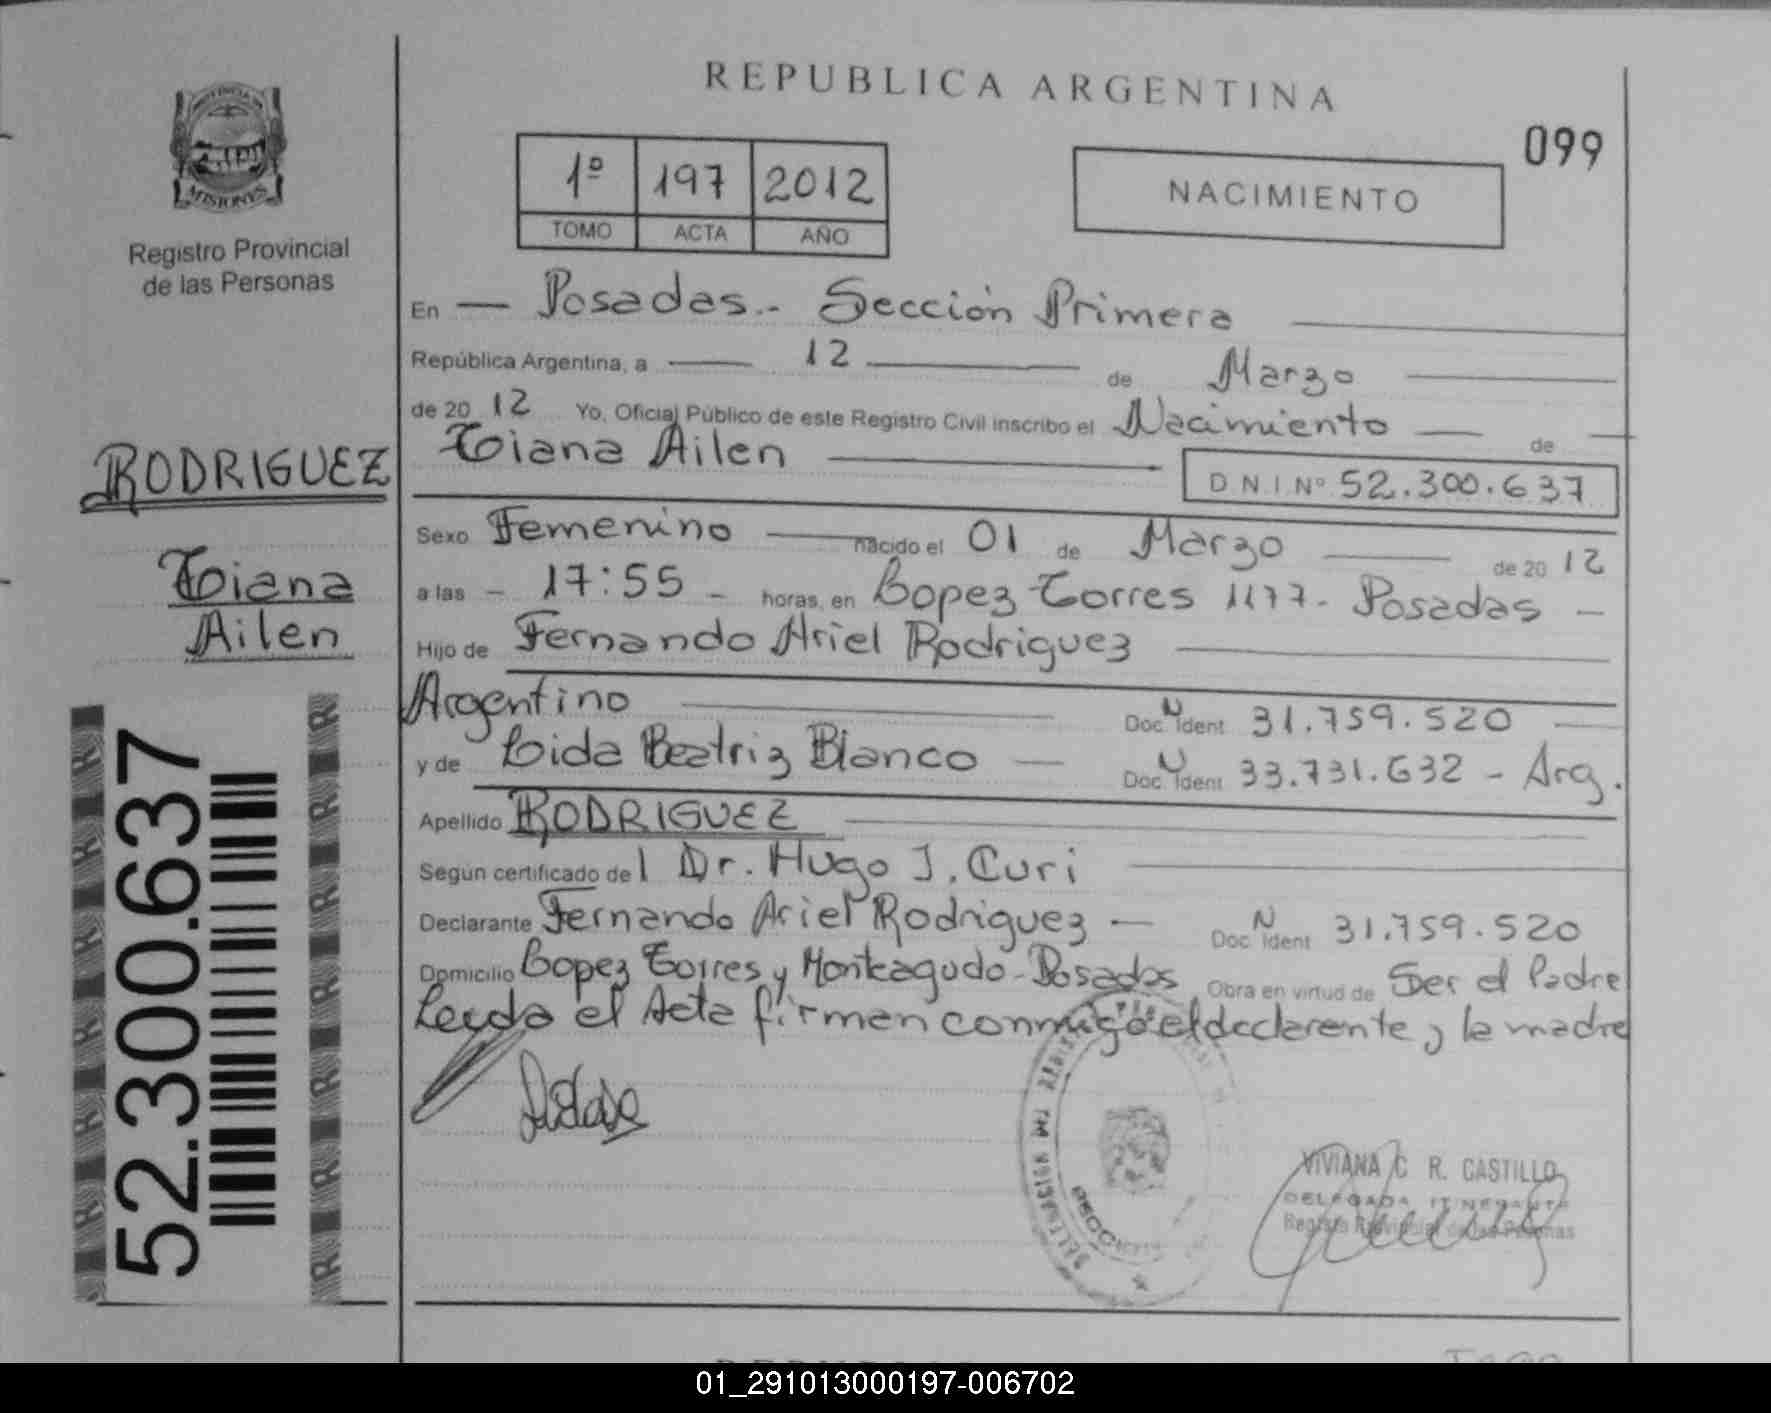 REPUBLICA ARGENTINA
099
1º 197 2012
TOMO ACTA AÑO
NACIMIENTO
PROVINCIA DE
MISIONES
Registro Provincial
de las Personas
RODRIGUEZ
Tiana
Ailen
52.300.637
En — Posadas.- Sección Primera
República Argentina, a — 12 — de Marzo —
de 20 12 Yo, Oficial Público de este Registro Civil inscribo el Nacimiento — de —
Tiana Ailen — D N.I. Nº 52.300.637
Sexo Femenino — nacido el 01 de Marzo — de 20 12
a las - 17:55 - horas, en Lopez Torres 1177- Posadas -
Hijo de Fernando Ariel Rodriguez —
Argentino — Doc. N Ident 31.759.520 —
y de Lida Beatriz Blanco — Doc. N Ident 33.731.632 - Arg.
Apellido RODRIGUEZ —
Según certificado del Dr. Hugo J. Curi —
Declarante Fernando Ariel Rodriguez — Doc. N Ident 31.759.520
Domicilio Lopez Torres y Monteagudo-Posadas Obra en virtud de Ser el Padre
Leyda el Acta firman conmigo el declarente y la madre
VIVIANA C. R. CASTILLO
DELEGADA ITINERANTE
Registro Provincial de las Personas
01_291013000197-006702